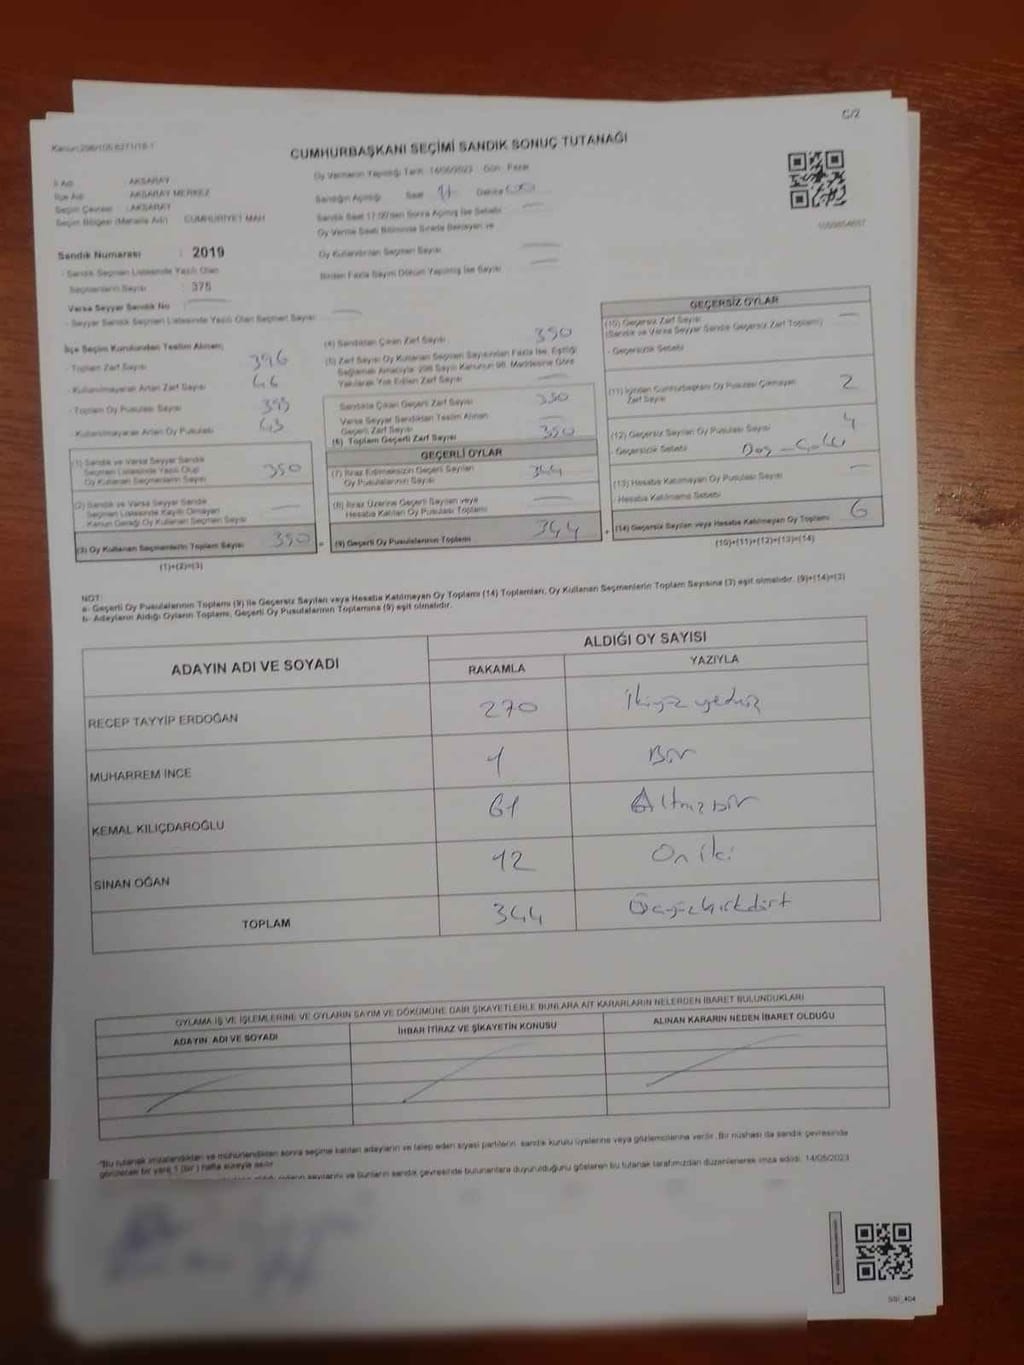 C/2
CUMHURBAŞKANI SEÇİMİ SANDIK SONUÇ TUTANAĞI
İl Adı : AKSARAY
İlçe Adı : AKSARAY MERKEZ
Seçim Çevresi : AKSARAY
Seçim Bölgesi (Mahalle Adı) : CUMHURİYET MAH
Sandık Numarası : 2019
- Sandık Seçmen Listesinde Yazılı Olan
Seçmenlerin Sayısı : 375
Varsa Seyyar Sandık No
- Seyyar Sandık Seçmen Listesinde Yazılı Olan Seçmen Sayısı
Oy Vermenin Yapıldığı Tarih 14/05/2023 Gün Pazar
Sandığın Açıldığı Saat 17 Dakika
Sandık Saat 17:00'den Sonra Açılmış İse Sebebi
Oy Verme Saati Bitiminde Sırada Bekleyen ve
Oy Kullandırılan Seçmen Sayısı
Birden Fazla Sayım Döküm Yapılmış İse Sayısı
İlçe Seçim Kurulundan Teslim Alınan;
- Toplam Zarf Sayısı 396
- Kullanılmayarak Artan Zarf Sayısı 46
- Toplam Oy Pusulası Sayısı 393
- Kullanılmayarak Artan Oy Pusulası 43
(1) Sandık ve Varsa Seyyar Sandık
Seçmen Listesinde Yazılı Olup
Oy Kullanan Seçmenlerin Sayısı 350
(2) Sandık ve Varsa Seyyar Sandık
Seçmen Listesinde Kayıtlı Olmayan
Kanun Gereği Oy Kullanan Seçmen Sayısı
(3) Oy Kullanan Seçmenlerin Toplam Sayısı 350
(1)+(2)=(3)
(4) Sandıktan Çıkan Zarf Sayısı 350
(5) Zarf Sayısı Oy Kullanan Seçmen Sayısından Fazla İse, Eşitliği
Sağlamak Amacıyla; 298 Sayılı Kanunun 98. Maddesine Göre
Yakılarak Yok Edilen Zarf Sayısı
Sandıkta Çıkan Geçerli Zarf Sayısı 350
Varsa Seyyar Sandıktan Teslim Alınan
Geçerli Zarf Sayısı
(6) Toplam Geçerli Zarf Sayısı 350
GEÇERLİ OYLAR
(7) İtiraz Edilmeksizin Geçerli Sayılan
Oy Pusulalarının Sayısı 344
(8) İtiraz Üzerine Geçerli Sayılan veya
Hesaba Katılan Oy Pusulası Toplamı
(9) Geçerli Oy Pusulalarının Toplamı 344
GEÇERSİZ OYLAR
(10) Geçersiz Zarf Sayısı
(Sandık ve Varsa Seyyar Sandık Geçersiz Zarf Toplamı)
- Geçersizlik Sebebi
(11) İçinden Cumhurbaşkanı Oy Pusulası Çıkmayan
Zarf Sayısı 2
(12) Geçersiz Sayılan Oy Pusulası Sayısı 4
Geçersizlik Sebebi
(13) Hesaba Katılmayan Oy Pusulası Sayısı
- Hesaba Katılmama Sebebi
(14) Geçersiz Sayılan veya Hesaba Katılmayan Oy Toplamı 6
(10)+(11)+(12)+(13)=(14)
NOT:
a- Geçerli Oy Pusulalarının Toplamı (9) ile Geçersiz Sayılan veya Hesaba Katılmayan Oy Toplamı (14) Toplamları, Oy Kullanan Seçmenlerin Toplam Sayısına (3) eşit olmalıdır. (9)+(14)=(3)
b- Adayların Aldığı Oyların Toplamı, Geçerli Oy Pusulalarının Toplamına (9) eşit olmalıdır.
ADAYIN ADI VE SOYADI
ALDIĞI OY SAYISI
RAKAMLA YAZIYLA
RECEP TAYYİP ERDOĞAN 270 ikiyüz yetmiş
MUHARREM İNCE 1 Bir
KEMAL KILIÇDAROĞLU 61 Altmışbir
SİNAN OĞAN 12 On iki
TOPLAM 344 Üçyüzkırkdört
OYLAMA İŞ VE İŞLEMLERİNE VE OYLARIN SAYIM VE DÖKÜMÜNE DAİR ŞİKAYETLERLE BUNLARA AİT KARARLARIN NELERDEN İBARET BULUNDUKLARI
ADAYIN ADI VE SOYADI
İHBAR İTİRAZ VE ŞİKAYETİN KONUSU
ALINAN KARARIN NEDEN İBARET OLDUĞU
"Bu tutanak imzalandıktan ve mühürlendikten sonra seçime katılan adayların ve talep eden siyasi partilerin sandık kurulu üyelerine veya gözlemcilerine verilir. Bir nüshası da sandık çevresinde
görülecek bir yere 1 (bir) hafta süreyle asılır.
sayılarını ve bunların sandık çevresinde bulunanlara duyurulduğunu gösteren bu tutanak tarafımızdan düzenlenerek imza edildi. 14/05/2023